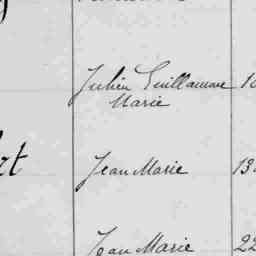 Julien Guillaume
Marie
Jean Marie 13
Jean Marie 22